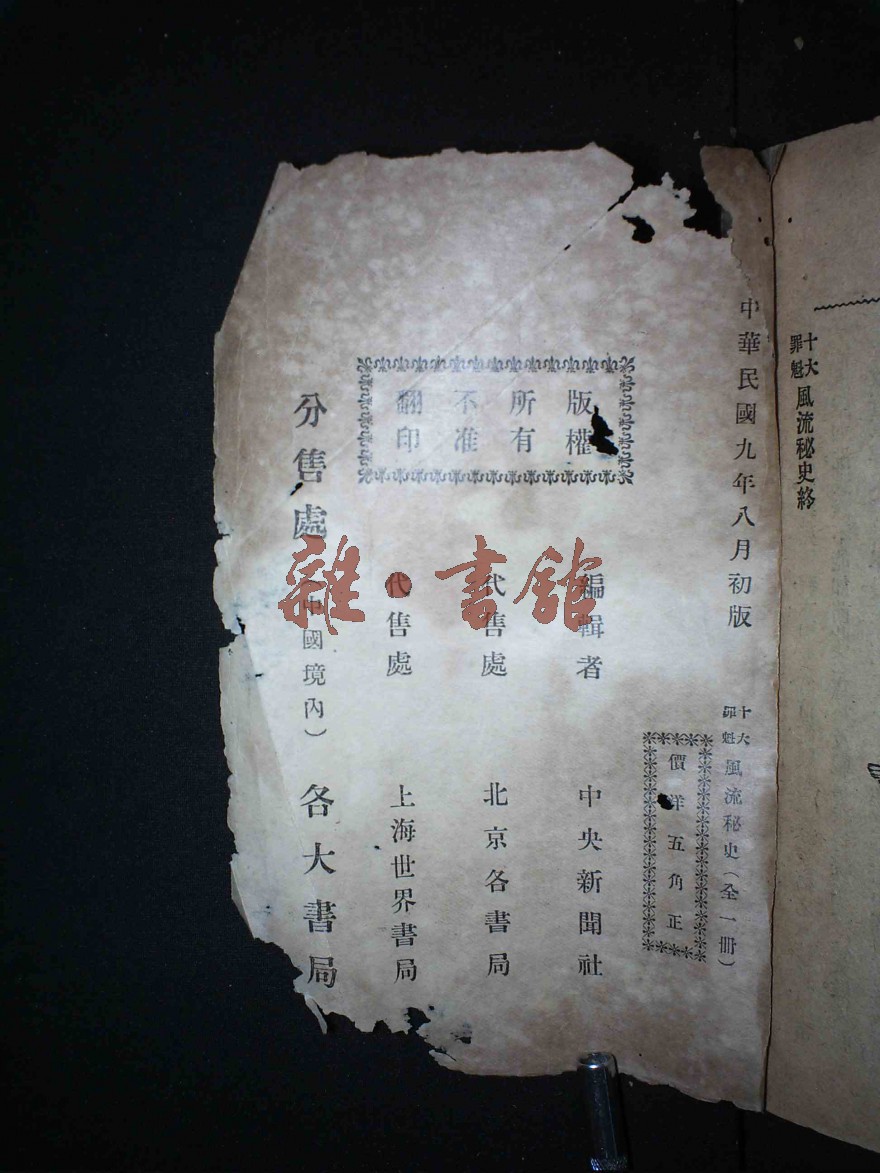 十大罪魁風流秘史終
中華民國九年八月初版
十大罪魁風流秘史（全一冊）
價洋五角正
版權
所有
不准
翻印
編輯者 中央新聞社
代售處 北京各書局
代售處 上海世界書局
分售處（中國境內）各大書局
雜·書館